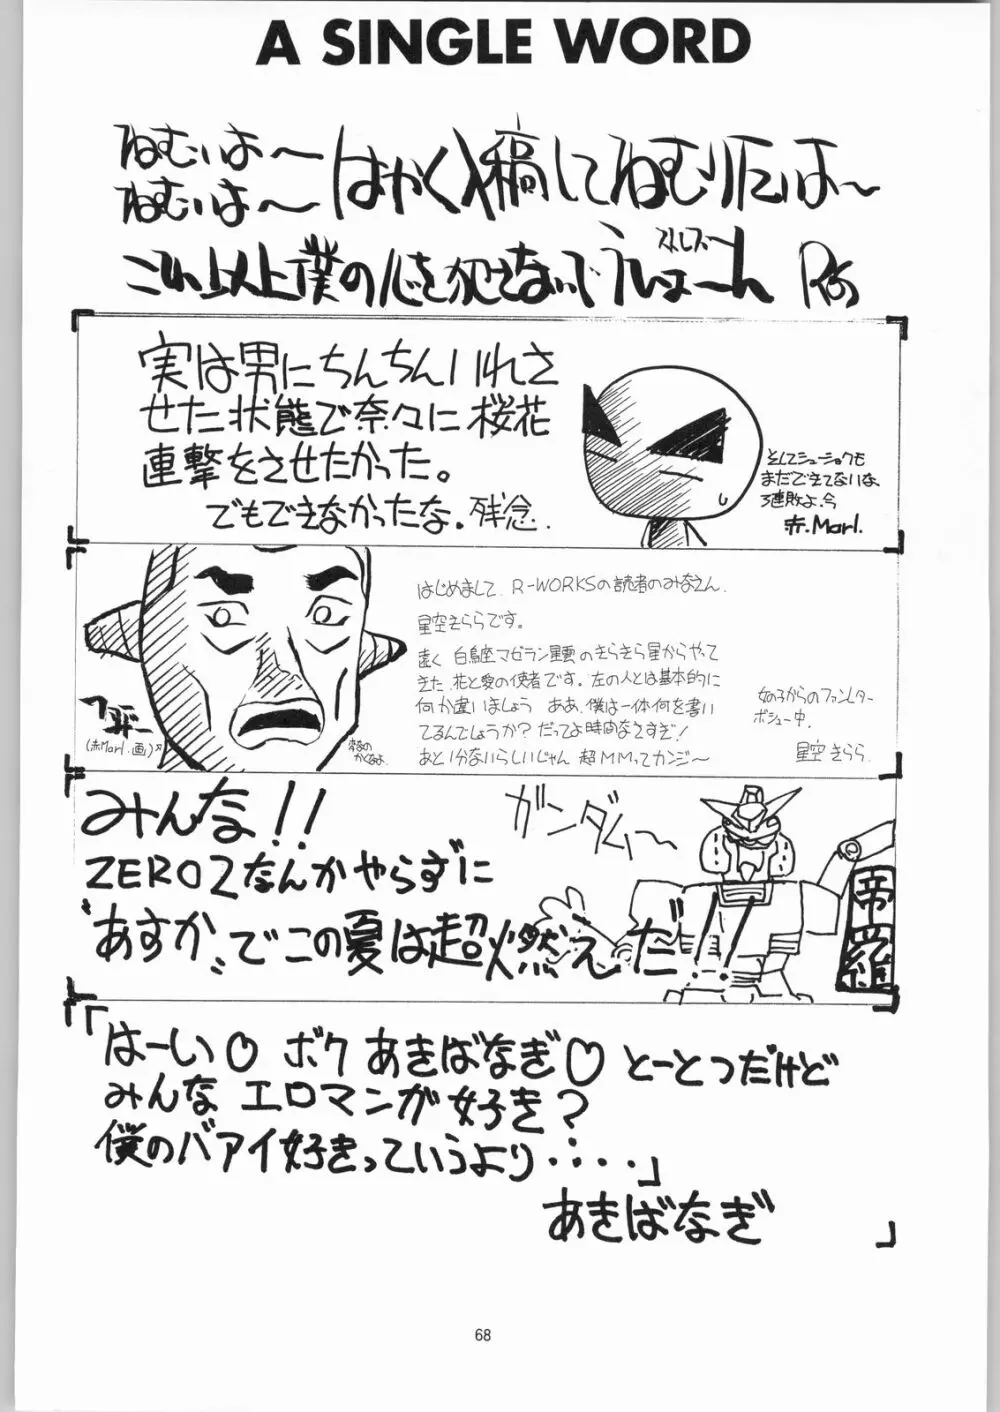 A SINGLE WORD
ねむいよ〜
ねむいよ〜
はやく入稿してねむりたいよ〜
これ以上僕の心を犯さないでうひょーん
実は男にちんちんいれさ
せた状態で奈々に桜花
連撃をさせたかった。
でもできなかったな。残念.
まだできてないな
3連敗よ、今
赤.Marl.
(赤Marl.画)
はじめまして. R-WORKSの読者のみなさん.
星空きららです。
遠く 白鳥座マゼラン星雲のきらきら星からやって
きた 花と愛の使者です。左の人とは基本的に
何か違いましょう ああ、僕は一体何を書い
てるんでしょうか? だってよ時間なさすぎ!
あと1分ないらしいじゃん 超MMってカンジ〜
女の子からのファンレター
ボシュー中.
星空きらら
みんな!!
ZEROZなんかやらずに
"あすか"でこの夏は超燃えだ!!
ガンダム〜
帝羅
「はーい♡ ボク あきばなぎ♡ とーとつだけど
みんな エロマンガ好き?
僕のバアイ好きっていうより・・・・」
あきばなぎ
68